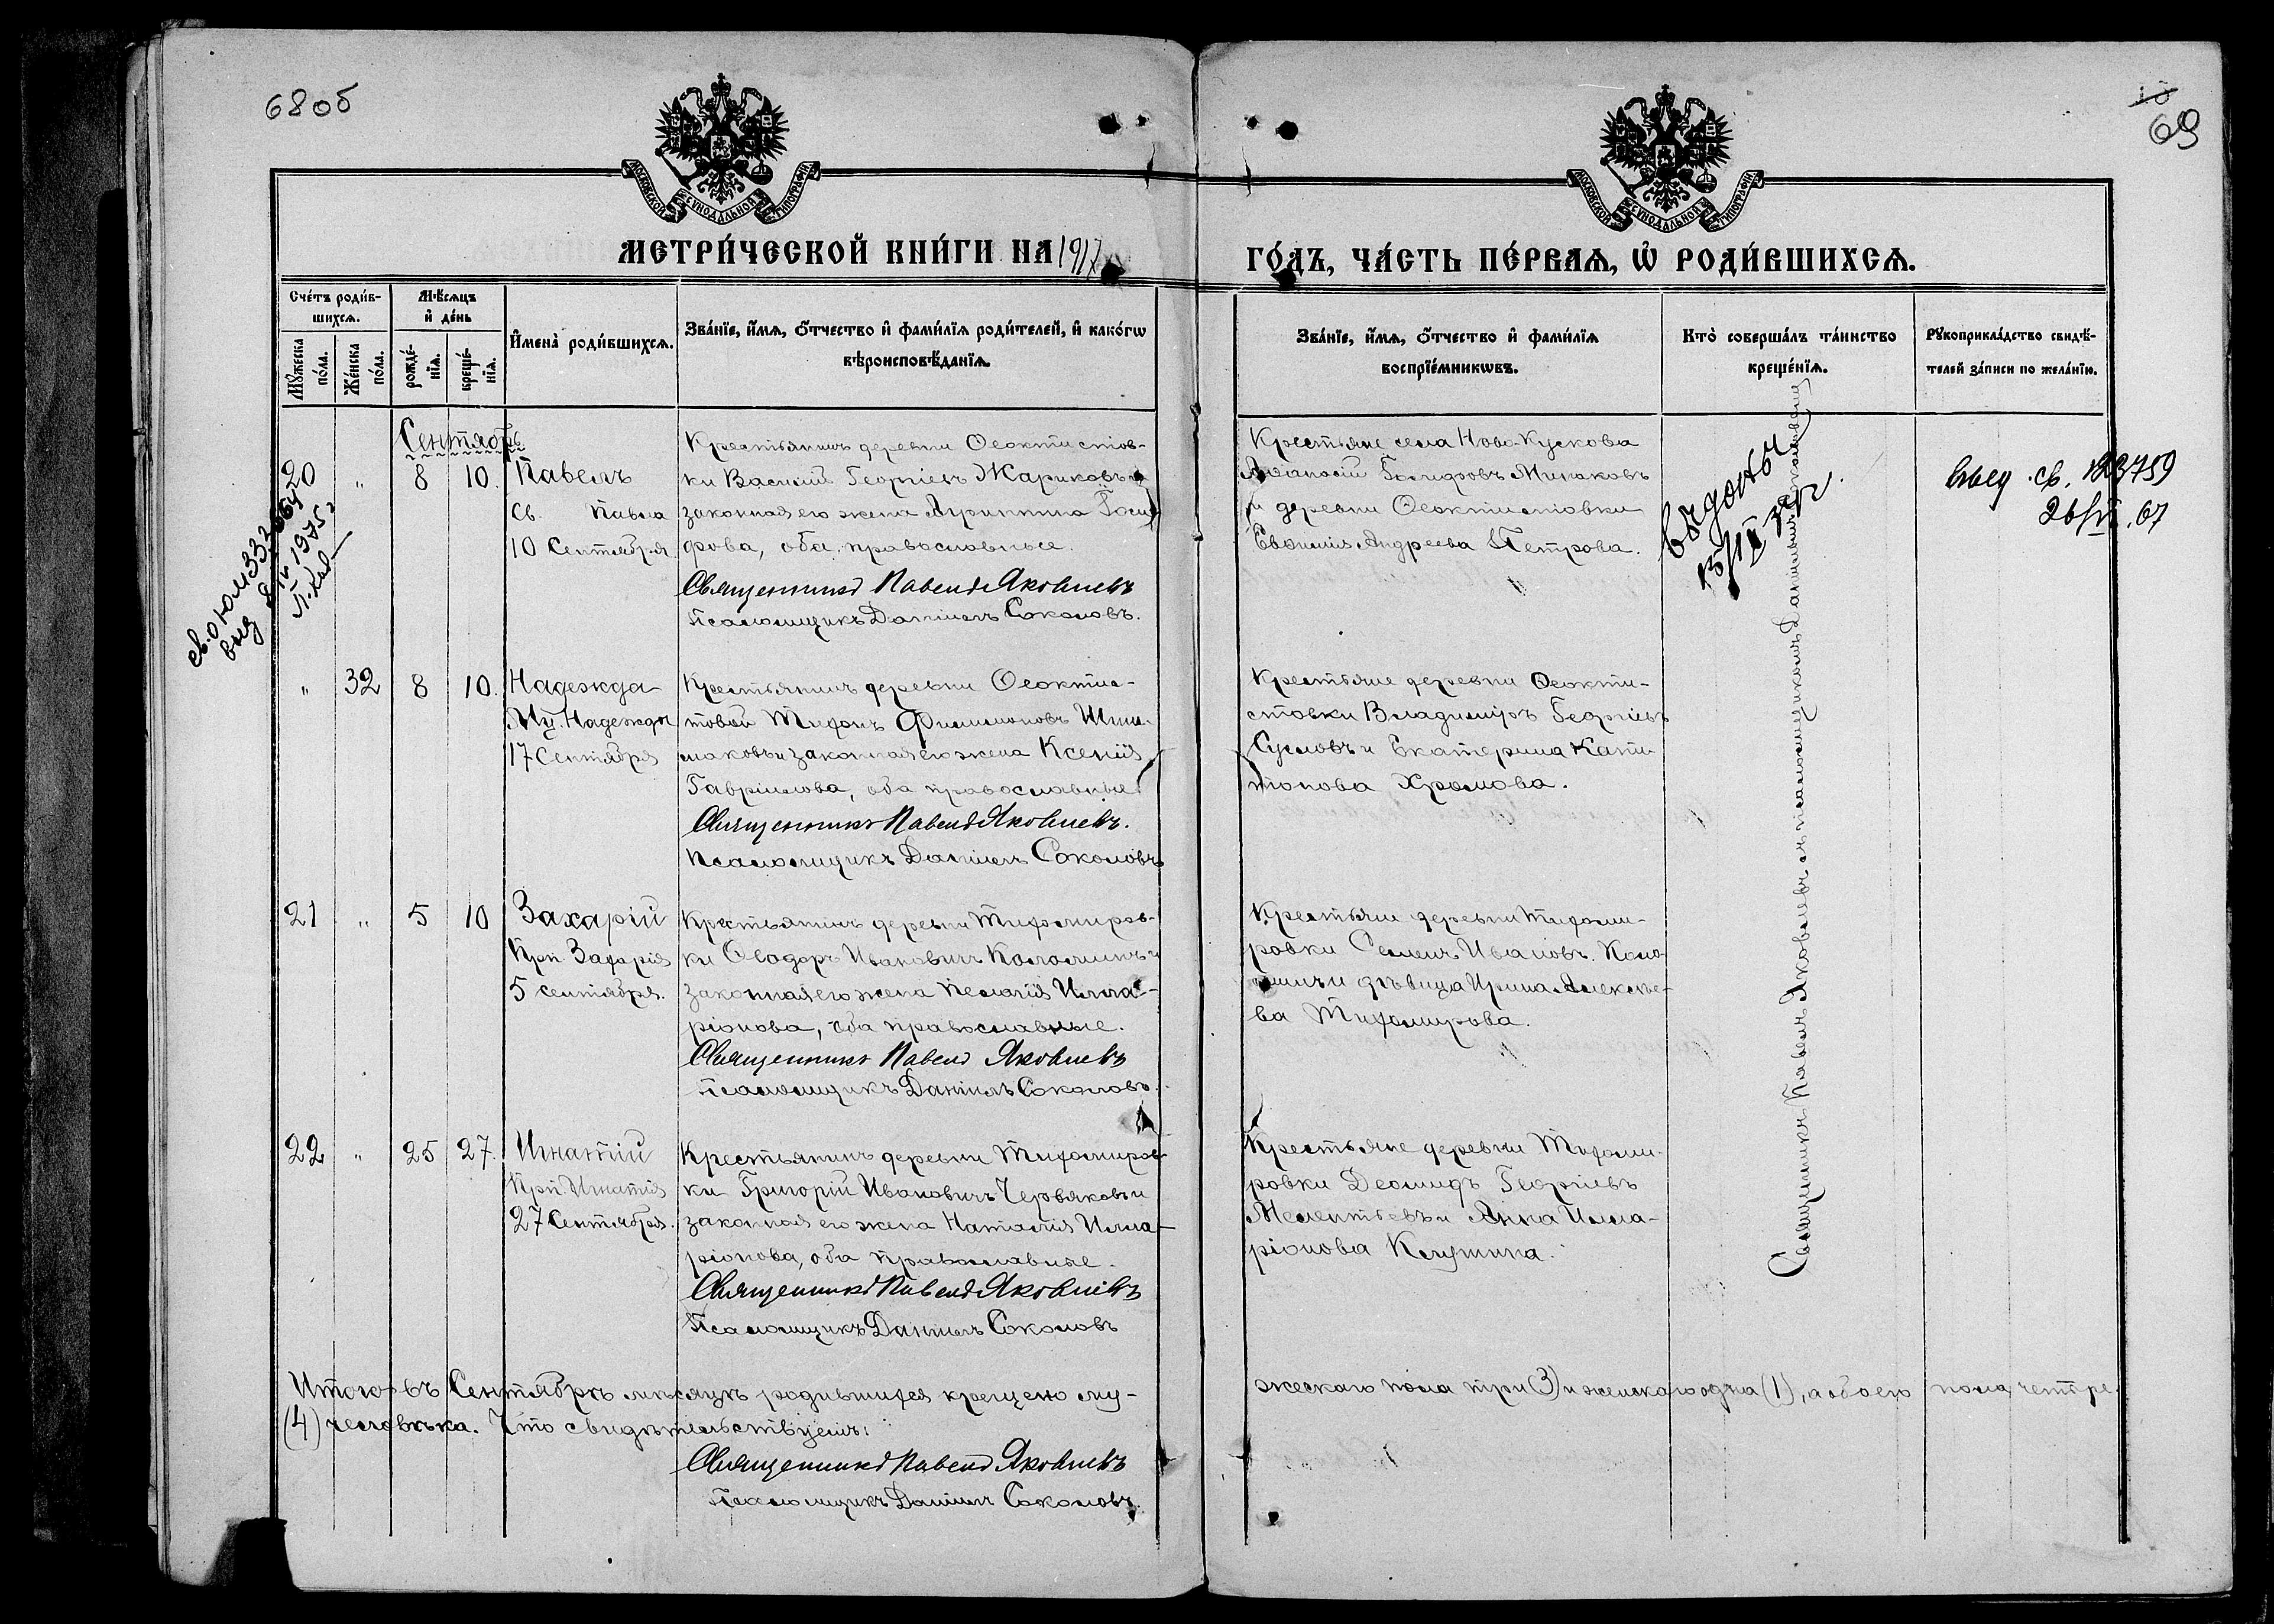 68об
69
МОСКОВСКОЙ СѴНОДАЛЬНОЙ ТИПОГРАФІИ
МОСКОВСКОЙ СѴНОДАЛЬНОЙ ТИПОГРАФІИ
МЕТРИ́ЧЕСКОЙ КНИ́ГИ НА 1917
ГО́ДЪ, ЧА́СТЬ ПЕ́РВАѦ, Ѡ҆ РОДИ́ВШИХСѦ.
Сче́тъ роди́в-
шихсѧ.
Мѣ́сѧцъ
и҆ де́нь
Мꙋ́жеска
по́ла.
Же́нска
по́ла.
рожде́-
нїѧ.
креще́-
нїѧ.
И҆мена̀ роди́вшихсѧ.
Зва́нїе, и҆́мѧ, ѻ҆́тчество и҆ фами́лїѧ роди́телей, и҆ како́гѡ
вѣроисповѣ́данїѧ.
Зва́нїе, и҆́мѧ, ѻ҆́тчество и҆ фами́лїѧ
воспрїе́мникѡвъ.
Кто̀ соверша́лъ та́инство
креще́нїѧ.
Рꙋкоприкла́дство свидѣ́-
телей за́писи по жела́нїю.
Сентябрь
20 " 8 10. Павелъ
св. Павла
10 Сентября
Крестьянинъ деревни Ѳеоктистов-
ки Василій Георгіевъ Жариковъ и
законная его жена Агриппина
фрова, оба православные.
Священникъ Павелъ Яковлевъ
Псаломщикъ Даніилъ Соколовъ.
Крестьяне села Ново-Кускова
Минаковъ
и деревни Ѳеоктистовки
Евфимія Андреева Петрова.
1975
26/ 67
" 32 8 10. Надежда
Мц. Надежды
17 Сентября
Крестьянинъ деревни Ѳеоктис-
товки Тихонъ Филимоновъ
и законная его жена Ксенія
Гавріилова, оба православные
Священникъ Павелъ Яковлевъ.
Псаломщикъ Даніилъ Соколовъ
Крестьяне деревни Ѳеокти-
стовки Владиміръ Георгіевъ
Сусловъ и Екатерина Капи-
тонова Хромова.
21 " 5 10 Захарій
Прп. Захарія
5 сентября.
Крестьянинъ деревни Тихомиров-
ки Ѳеодоръ Ивановичъ Коломинъ и
законная его жена Пелагія Илла-
ріонова, оба православные.
Священникъ Павелъ Яковлевъ
Псаломщикъ Даніилъ Соколовъ.
Крестьяне деревни Тихоми-
ровки Семенъ Ивановъ Коло-
минъ и дѣвица Ирина Алексѣе-
ва Тихомирова.
22 " 25 27. Игнатій
Прп. Игнатія
27 Сентября.
Крестьянинъ деревни Тихомиров-
ки Григорій Ивановичъ Червяковъ и
законная его жена Наталія Илла-
ріонова, оба православные.
Священникъ Павелъ Яковлевъ
Псаломщикъ Даніилъ Соколовъ
Крестьяне деревни Тихоми-
ровки Діомидъ Георгіевъ
Мелентьевъ и Анна Илла-
ріонова
Священникъ Павелъ Яковлевъ съ псаломщикомъ Даніиломъ Соколовымъ
Итого въ Сентябрѣ мѣсяцѣ родившихся крещено му-
жескаго пола три (3) и женскаго одна (1), а обоего пола четыре
(4) человѣка. Что свидѣтельствуемъ:
Священникъ Павелъ Яковлевъ
Псаломщикъ Даніилъ Соколовъ.